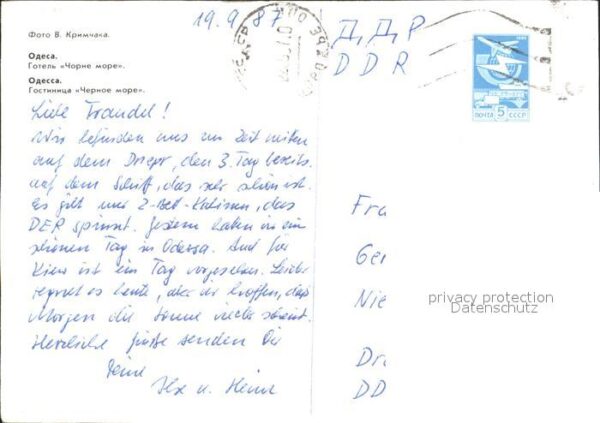 19.9.87
Д,Д,Р
DDR
Фото В. Кримчака.
Одеса.
Готель «Чорне море».
Одесса.
Гостиница «Черное море».
ПОЧТА 5 СССР
Liebe Traudel!
Wir befinden uns zur Zeit mitten
auf dem Dnepr, den 3. Tag bereits
auf dem Schiff, das sehr schön ist.
Es gibt nur 2-Bett-Kabinen, das
DER spinnt. Gestern haben wir ein
schönen Tag in Odessa. Auch für
Kiew ist ein Tag vorgesehen. Leider
regnet es heute, aber wir hoffen, daß
Morgen die Sonne wieder scheint.
Herzliche Grüße senden Dir
Deine
u. Heinz
Fra
Ger
Nie
Dr
DD
privacy protection
Datenschutz